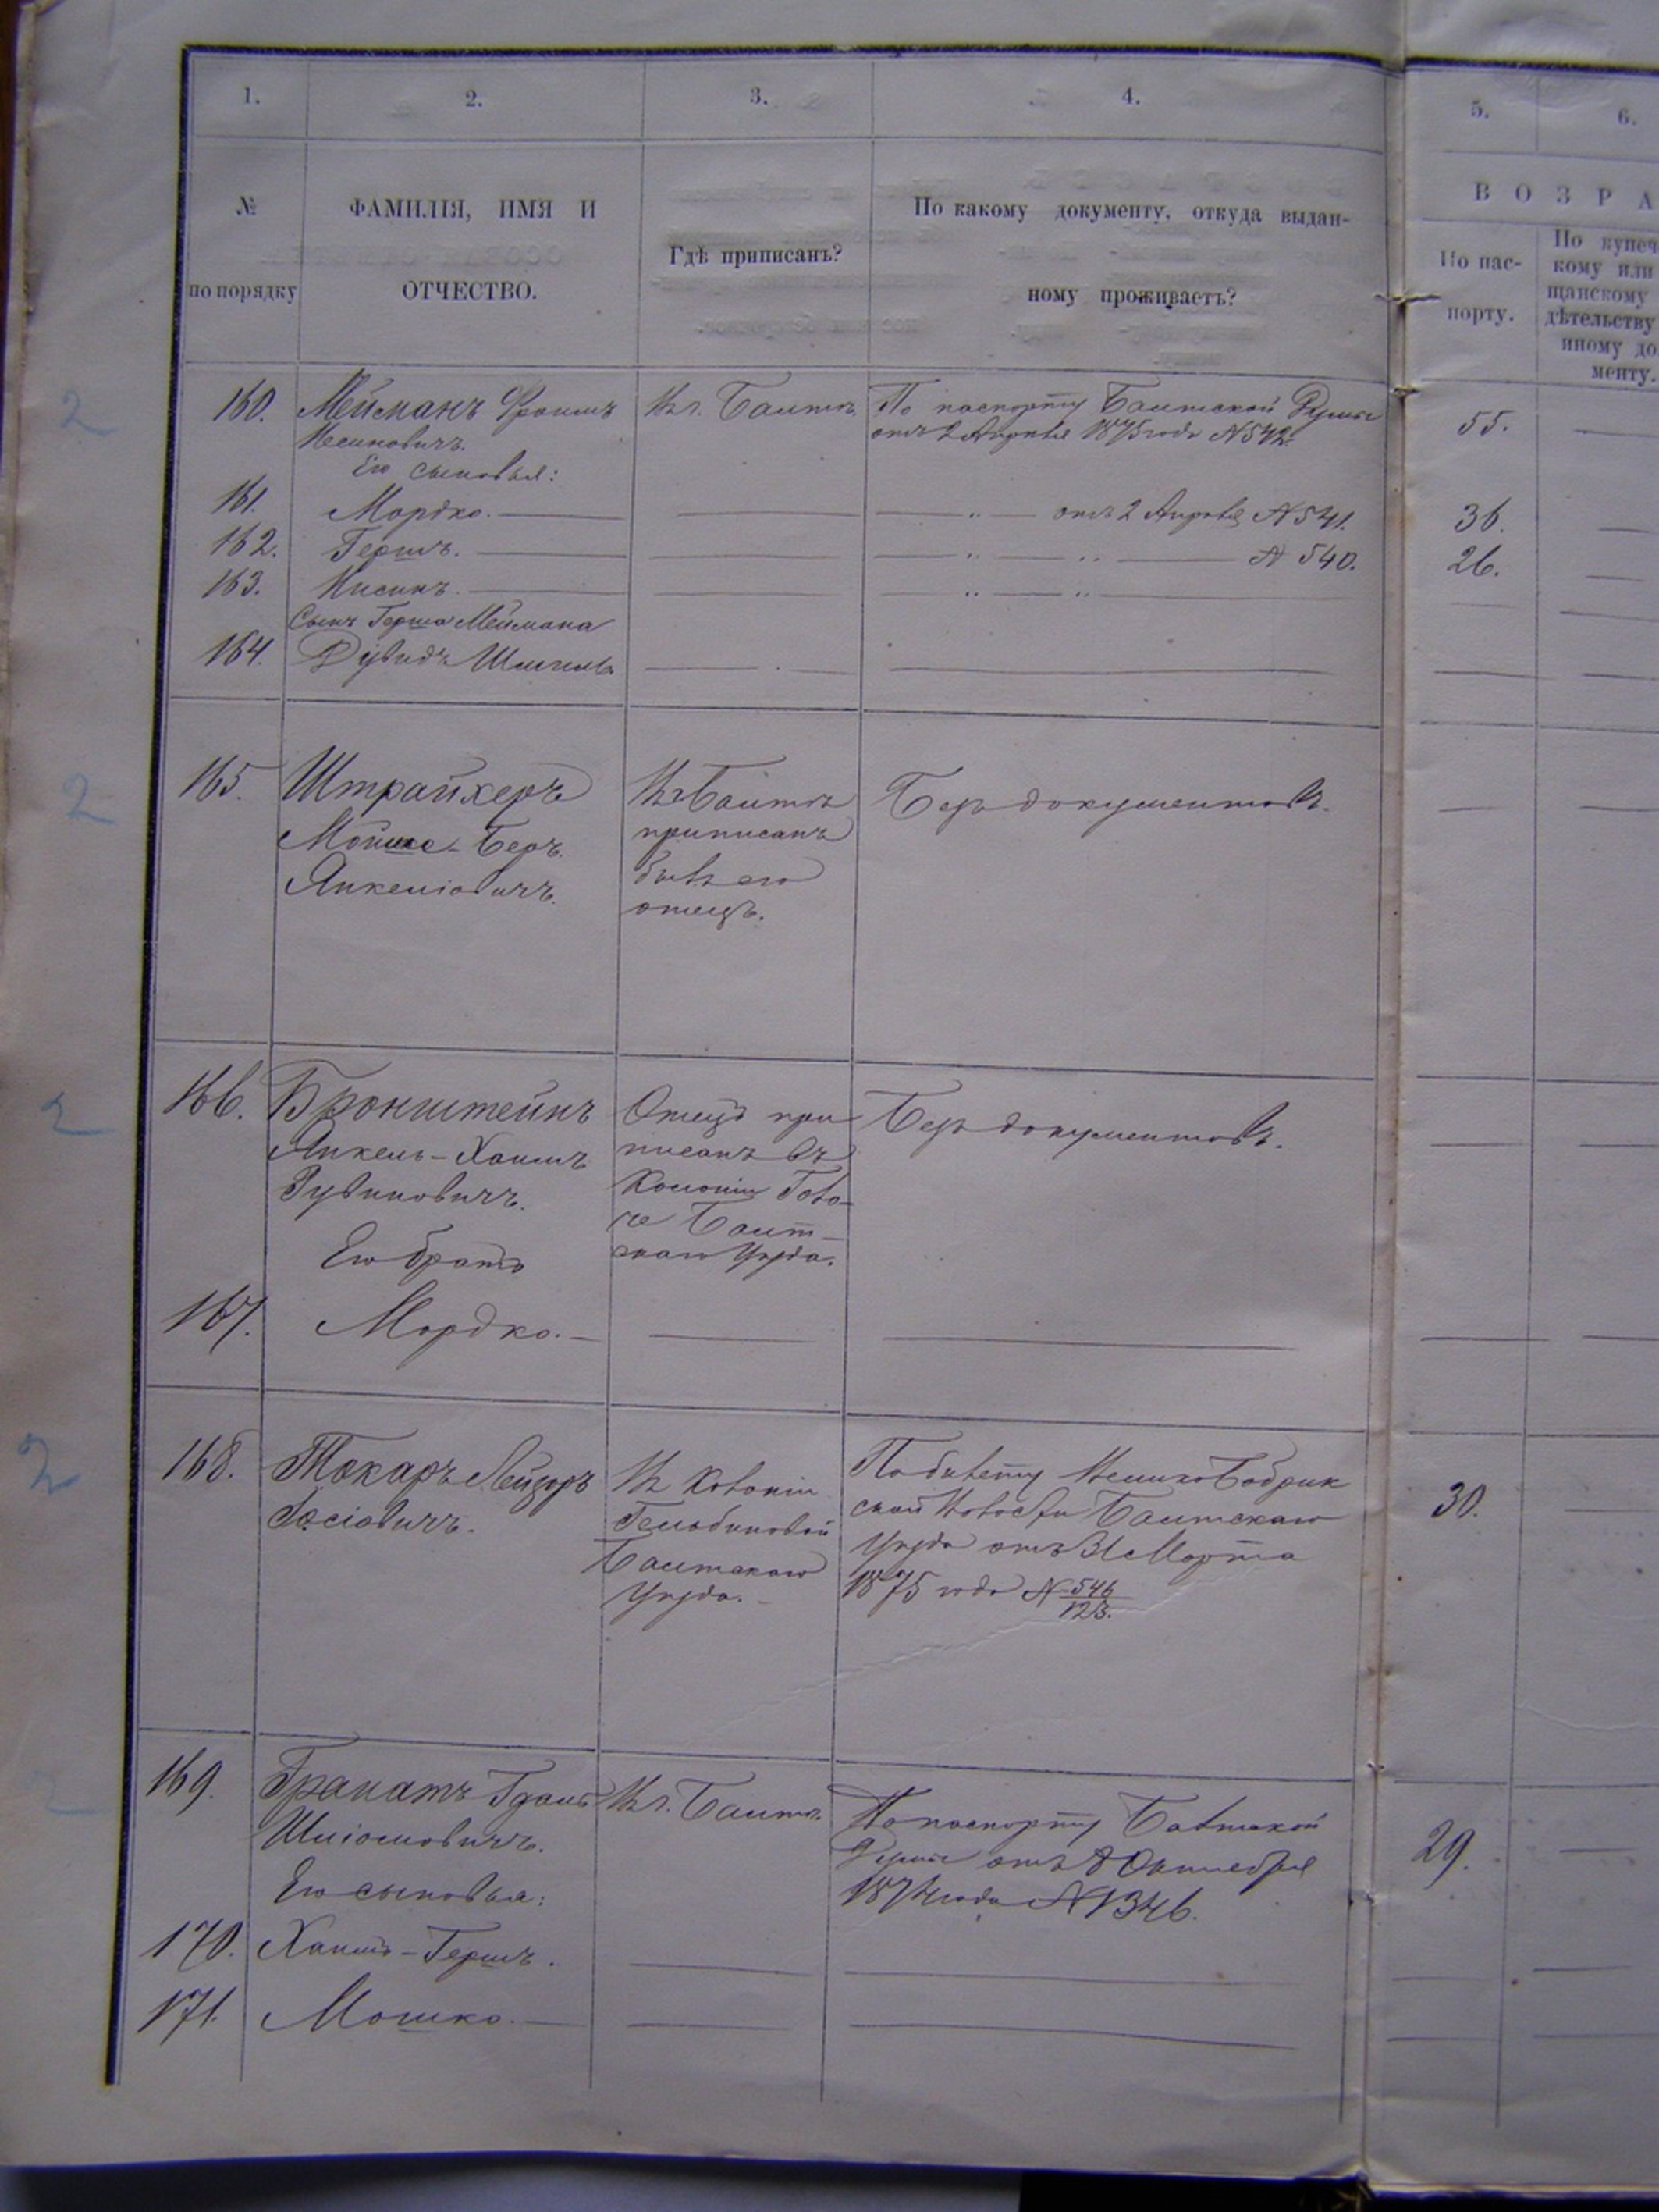 1.
2.
3.
4.
5.
6.
№
по порядку
ФАМИЛІЯ, ИМЯ И
ОТЧЕСТВО.
Гдѣ приписанъ?
По какому документу, откуда выдан-
ному проживаетъ?
В О З Р А
По пас-
порту.
По купеч
кому или
щанскому
дѣтельству
иному до
менту.
160. Мейманъ Фроимъ
Его сыновья:
Въ г. Балтѣ.
По паспорту Балтской Думы
отъ 2 Апрѣля 1875 года N 542.
55.
161. Мордко. — — „ — отъ 2 Апрѣля N 541. 36.
162. Гершъ. — — „ — „ — N 540. 26.
163. — — „ — „ —
Сынъ Герша Меймана
164. Дувидъ
165. Штрайхеръ
Мойше-Беръ
Янкеліовичъ.
Въ Балтѣ
приписанъ
былъ его
отецъ.
Безъ документовъ.
166. Бронштейнъ
Янкель-Хаимъ
Рувиновичъ.
Его братъ
Отецъ при
писанъ въ
Колоніи
Балт-
скаго Уѣзда.
Безъ документовъ.
167. Мордко. —
168. Токаръ Лейзоръ
Іосіовичъ.
Въ Колоніи
Балтскаго
Уѣзда.
По билету
Волости Балтскаго
Уѣзда отъ 31 Марта
1875 года N 546
123.
30.
169. Гранатъ
Шліомовичъ.
Его сыновья:
Въ г. Балтѣ.
По паспорту Балтской
Думы отъ 8 Октября
1874 года N 1346.
29.
170. Хаимъ-Гершъ.
171. Мошко. —
2
2
2
2
2